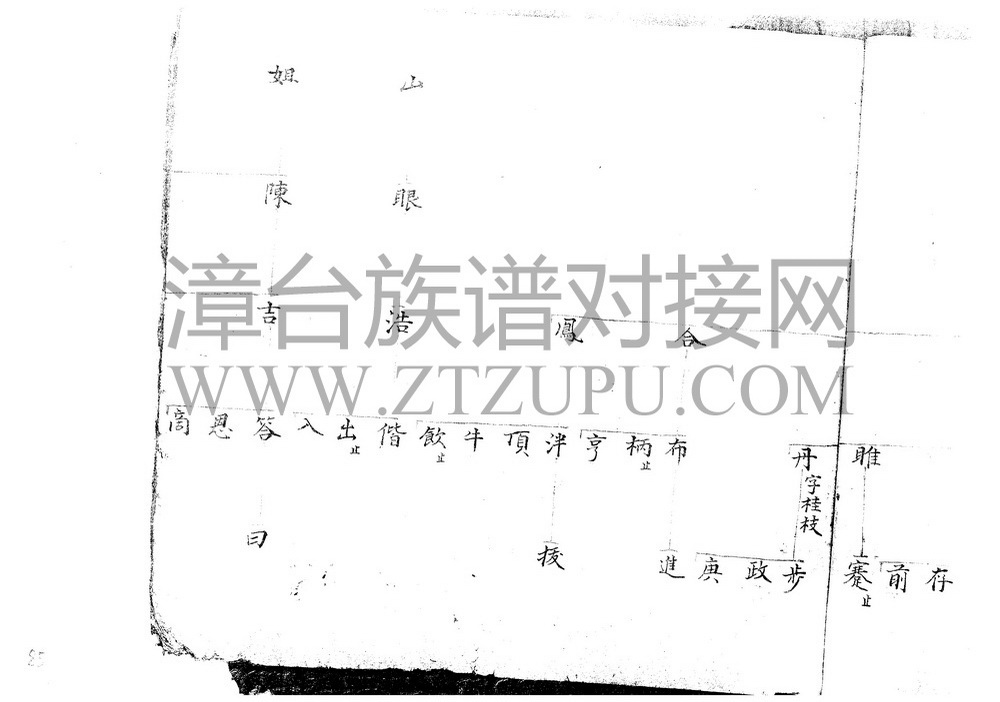 山 姐
眼 陳
合 鳳 浩 吉
睢 丹字桂枝
布 柄止 亨 泮 頂 牛 飲止 偕 出止 入 答 恩 啇
存 前 蹇止 步 政 庚 進 援 曰
漳台族谱对接网
WWW.ZTZUPU.COM
85